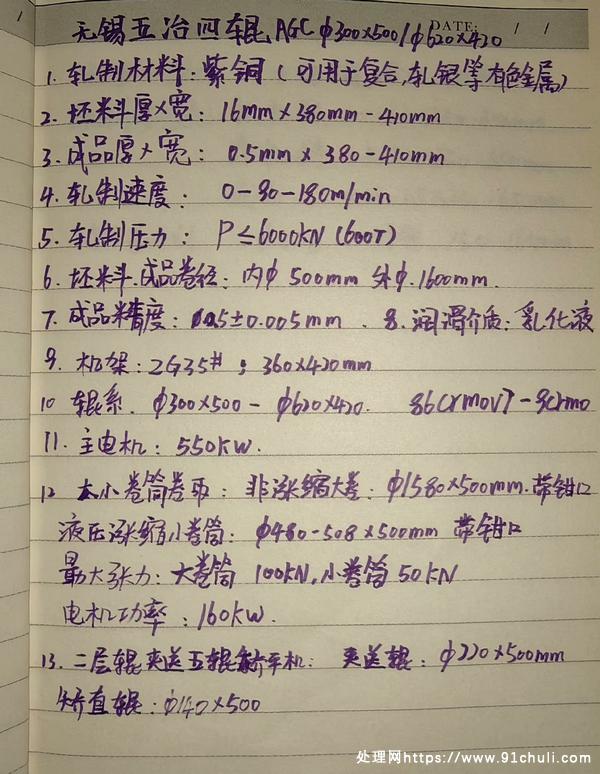 DATE: / /
无锡五冶四辊AGC φ300×500/φ620×420
1. 轧制材料：紫铜（可用于复合,轧银等有色金属）
2. 坯料厚×宽：16mm×380mm-410mm
3. 成品厚×宽：0.5mm×380-410mm
4. 轧制速度：0-90-180m/min
5. 轧制压力：P≤6000kN(600T)
6. 坯料.成品卷径：内φ500mm 外φ.1600mm.
7. 成品精度：0.5±0.005mm. 8. 润滑介质：乳化液
9. 机架：ZG35#；360×420mm
10 辊系. φ300×500-φ620×420. 86CrmoV7-9Crmo
11. 主电机：550kW.
12 大小卷筒卷取：非涨缩大卷：φ1580×500mm.带钳口
液压涨缩小卷筒：φ480-508×500mm 带钳口
最大张力：大卷筒100kN,小卷筒50kN
电机功率：160kW.
13. 二层辊夹送五辊矫平机：夹送辊：φ220×500mm
矫直辊：φ140×500
处理网https://www.91chuli.com